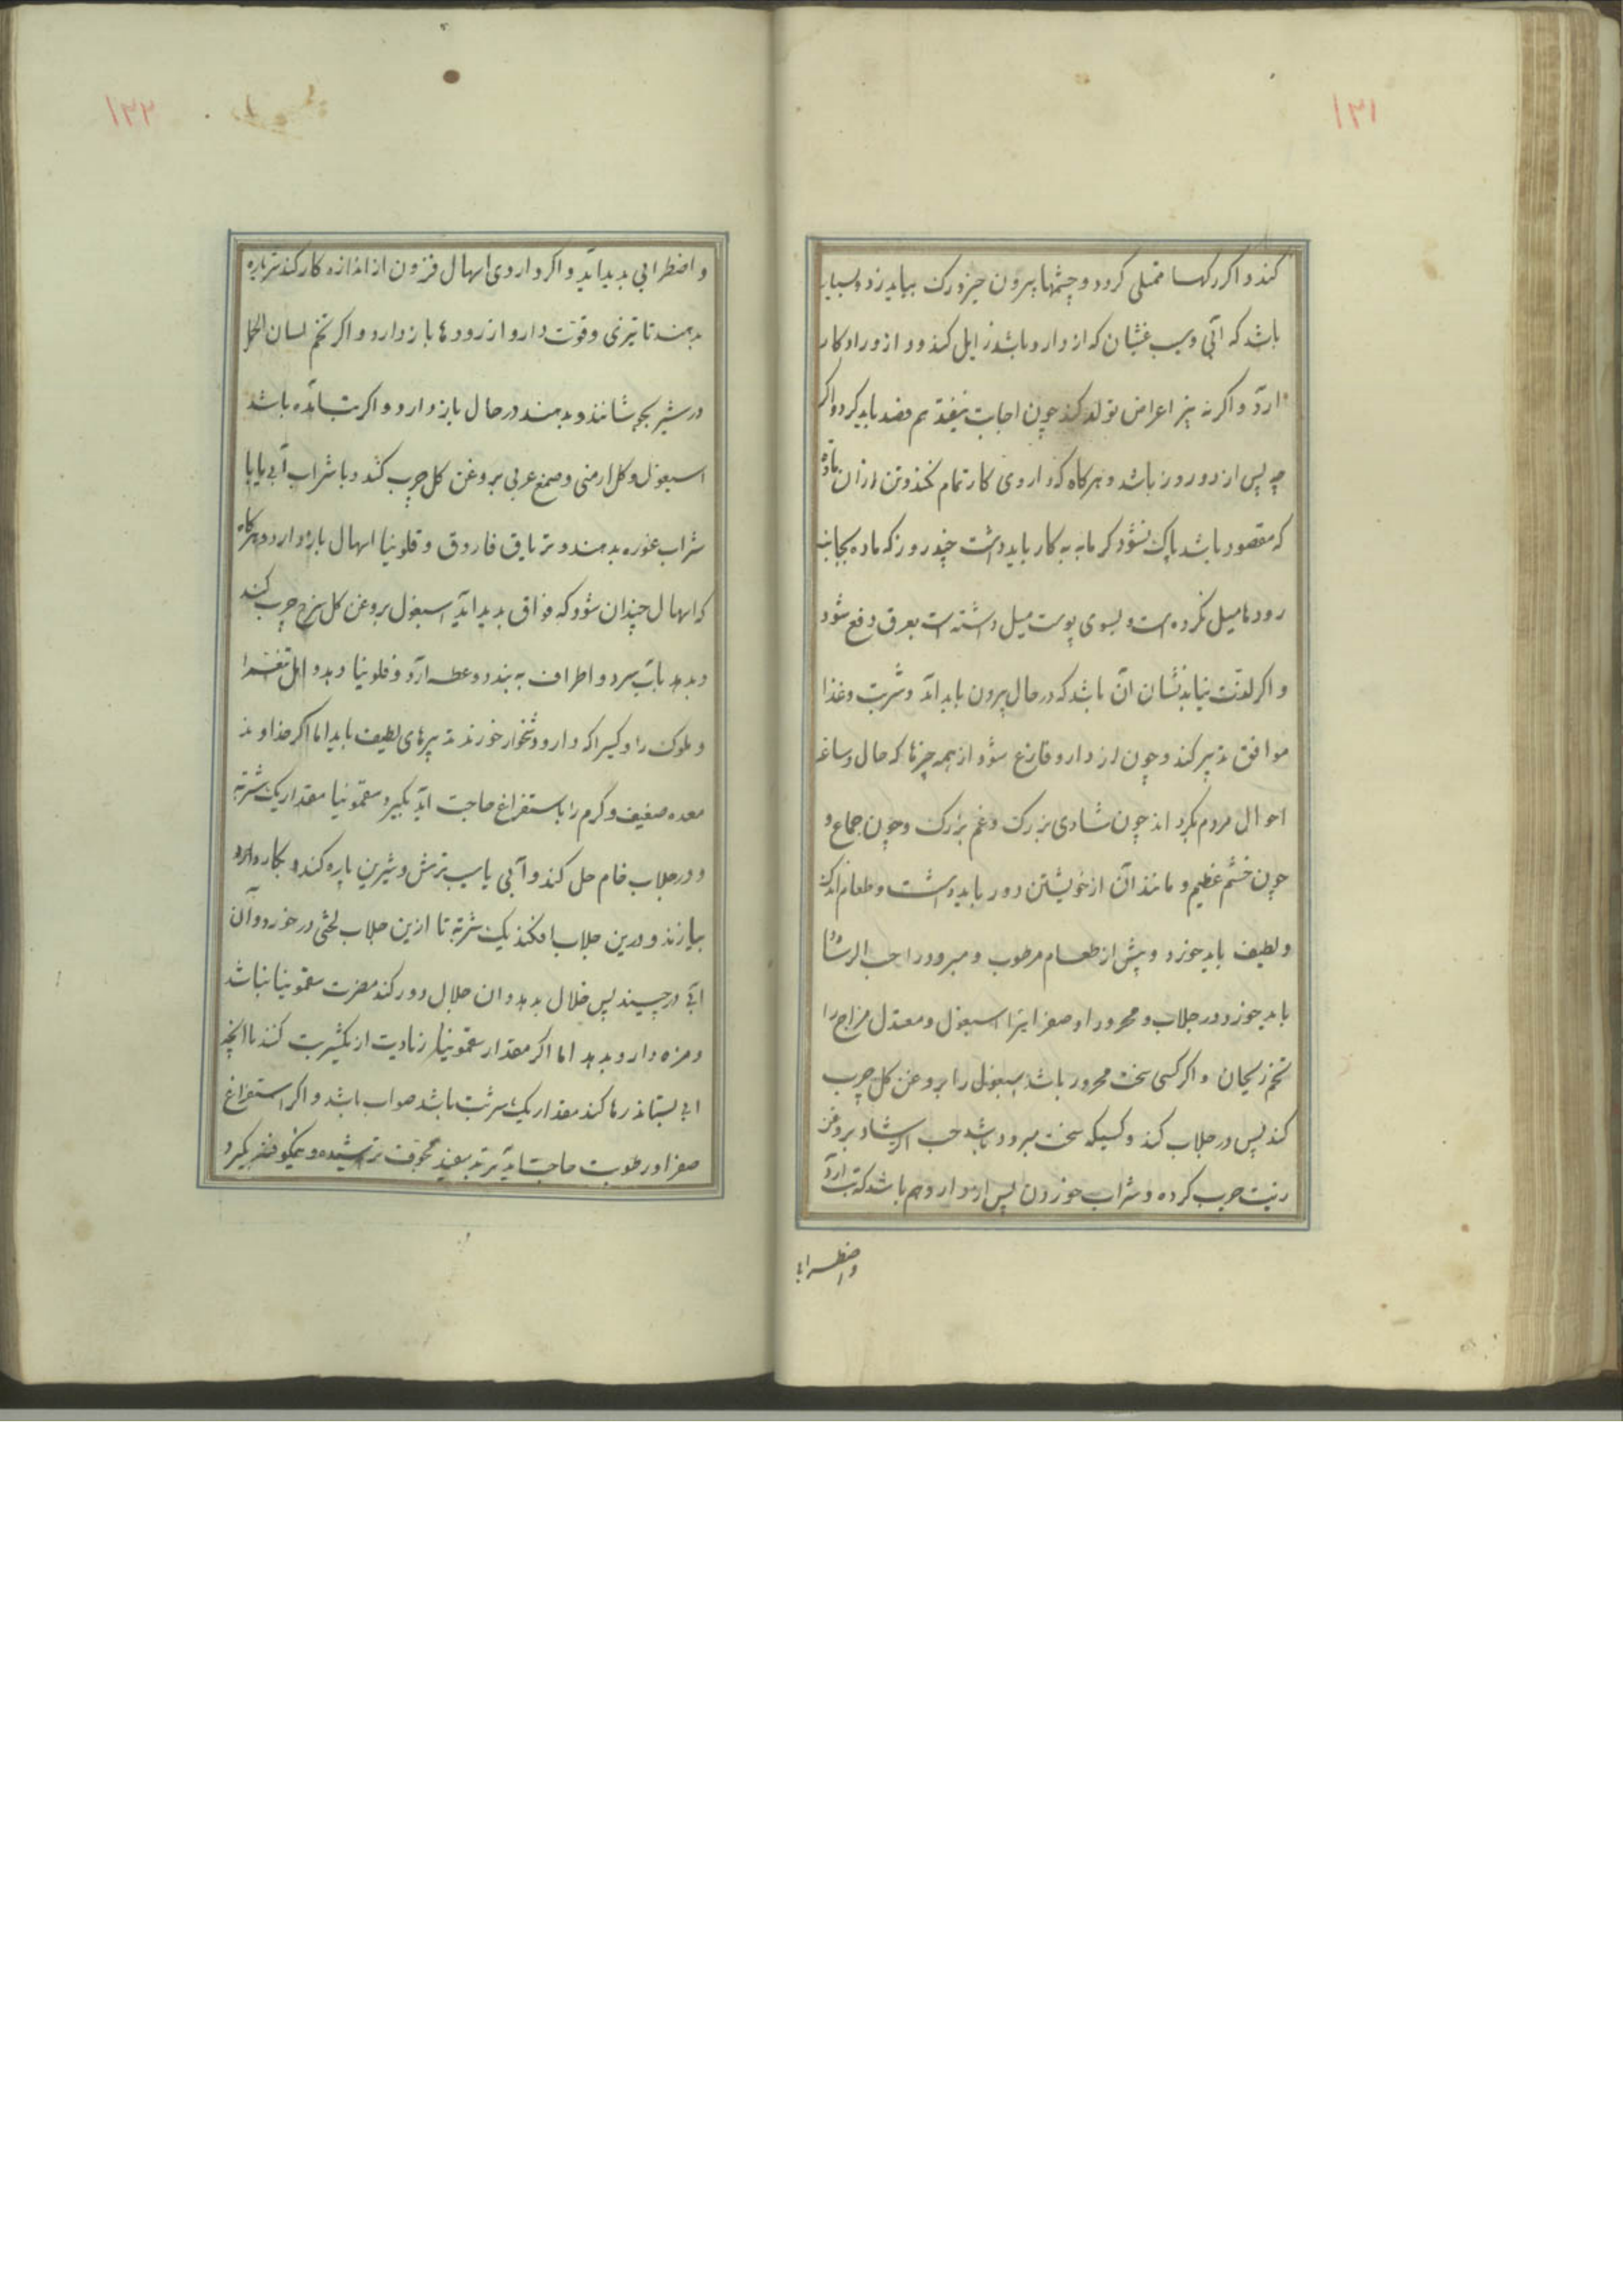 ۱۳۱
کند و اگر رکها ممتلی کردد و چشمها بیرون خیزد رک بباید زد و بسیار
باشد که آبی و سیب غثیان که از دارو باشد زایل کند و دارو را در کار
آرد و اکر نه نیز اعراض تولد کند چون اجابت نیفتد هم فصد باید کرد و اکر
چه پس از دو روز باشد و هرکاه که داروی کار تمام نکند و تن از آن ماده
که مقصود باشد پاک نشود کرمابه به کار باید داشت چند روز که ماده بجانب
رودها میل نکرده است و بسوی پوست میل داشته است بعرق دفع شود
و اکر لذت نیابد نشان آن باشد که در حال بیرون باید آمد و شربت و غذا
موافق تدبیر کند و چون از دارو فارغ شود از همه چیزها که حال و ساعة
احوال مردم بکرداند چون شادی بزرک و غم بزرک و چون جماع و
چون خشم عظیم و مانند آن از خویشتن دور باید داشت و طعام اندک
و لطیف باید خورد و پیش از طعام مرطوب و مبرود را حب الرشاد
باید خورد در جلاب و محرور را و صفرایی را اسبغول و معتدل مزاج را
تخم ریحان و اکر کسی سخت محرور باشد اسبغول را بروغن کل چرب
کند پس در جلاب کند و کسیکه سخت مبرود باشد حب الرشاد بروغن
زیت چرب کرده و شراب خوردن پس از دارو هم باشد که تب آرد
و اضطرابی
۱۳۲
و اضطرابی بدید آید و اکر داروی اسهال فزون از اندازه کار کند شربة
بدهند تا تیزی و قوت دارو از رودها باز دارد و اکر تخم لسان الحمل
در شیر بجوشانند و بدهند در حال باز دارد و اکر تب آمده باشد
اسبغول و کل ارمنی و صمغ عربی بروغن کل چرب کنند و با شراب آبی یا با
شراب غوره بدهند و تریاق فاروق و فلونیا اسهال باز دارد و هرکاه
که اسهال چندان شود که فواق بدید آید اسبغول بروغن کل سرخ چرب کند
و بدهد بآب سرد و اطراف به بندد و عطسه آرد و فلونیا دهد و اهل تنعم را
و ملوک را و کسیرا که دارو دشخوار خورند تدبیرهای لطیف باید اما اکر خداوند
معده ضعیف و کرم را باستفراغ حاجت آید بکیرد سقمونیا مقدار یک شربة
و در جلاب خام حل کند و آبی یا سیب ترش و شیرین پاره کند و بکارد
بیازند و درین جلاب افکند یک شربة تا ازین جلاب لختی در خورد و آن
آبی در چسبند پس خلال بدهد و آن خلال دور کند مضرت سقمونیا نباشد
و مزه دارو بدهد اما اکر مقدار سقمونیا زیادت از یکشربت کند تا آنچه
آبی بستاند رها کند مقدار یک شربت باشد صواب باشد و اکر استفراغ
صفرا و رطوبت حاجت آید تربد سفید مجوف تراشیده و نیکو کوفته بکیرد